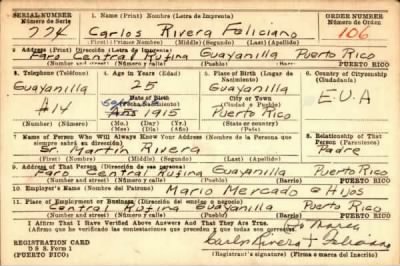 SERIAL NUMBER 1. Name (Print) Nombre (Letra de Imprenta) ORDER NUMBER
Número de Serie Número de Orden
224 Carlos Rivera Feliciano 106
(First) (Primer Nombre) (Middle) (Segundo) (Last) (Apellido)
2. Address (Print) Dirección (Letra de Imprenta)
Faro Central Rufina Guayanilla Puerto Rico
(Number and street) (Número y calle) (Town) (Pueblo) (Barrio) PUERTO RICO
3. Telephone (Teléfono) 4. Age in Years (Edad) 5. Place of Birth (Lugar de Nacimiento) 6. Country of Citizenship (Ciudadanía)
Guayanilla 25 Guayanilla
Date of Birth (Fecha Nacimiento) Town or City (Ciudad o Pueblo) E.U.A
A14 1915 Puerto Rico
(Number) (Número) (Mo.) (Day) (Yr.) (State or Country)
(Mes) (Día) (Año) (Estado o País)
7. Name of Person Who Will Always Know Your Address (Nombre de la Persona que siempre sabrá su dirección) 8. Relationship of That Person (Parentesco)
Sr. Martin Rivera Padre
(First) (Primer Nombre) (Middle) (Segundo) (Last) (Apellido)
9. Address of That Person (Dirección de esa persona)
Faro Central Rufina Guayanilla Puerto Rico
(Number and street) (Número y calle) (Town) (Pueblo) (Barrio) PUERTO RICO
10. Employer's Name (Nombre del Patrono)
Mario Mercado e Hijos
11. Place of Employment or Business (Dirección del empleo o negocio)
Central Rufina Guayanilla Puerto Rico
(Number and street) (Número y calle) (Town) (Pueblo) (Barrio) PUERTO RICO
I Affirm That I Have Verified Above Answers and That They Are True.
(Afirmo que he verificado las contestaciones que preceden y que todas son correctas)
REGISTRATION CARD
D S S. Form 1
(PUERTO RICO)
Carlos Rivera Feliciano